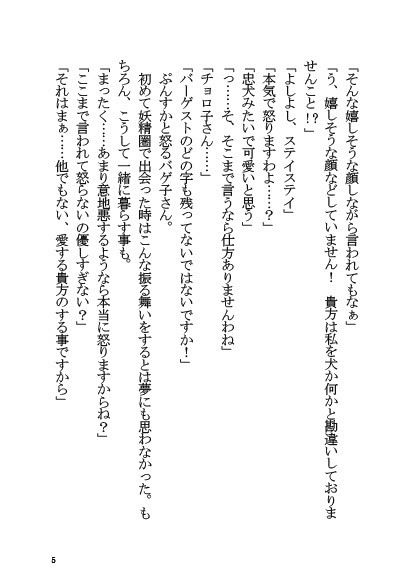 「そんな嬉しそうな顔しながら言われてもなぁ」
「う、嬉しそうな顔などしていません！　貴方は私を犬か何かと勘違いしておりま
せんこと!?」
「よしよし、ステイステイ」
「本気で怒りますわよ……？」
「忠犬みたいで可愛いと思う」
「っ……そ、そこまで言うなら仕方ありませんわね」
「チョロ子さん……」
「バーゲストのどの字も残ってないではないですか！」
ぷんすかと怒るバゲ子さん。
初めて妖精圏で出会った時はこんな振る舞いをするとは夢にも思わなかった。も
ちろん、こうして一緒に暮らす事も。
「まったく……あまり意地悪するようなら本当に怒りますからね？」
「ここまで言われて怒らないの優しすぎない？」
「それはまぁ……他でもない、愛する貴方のする事ですから」
5